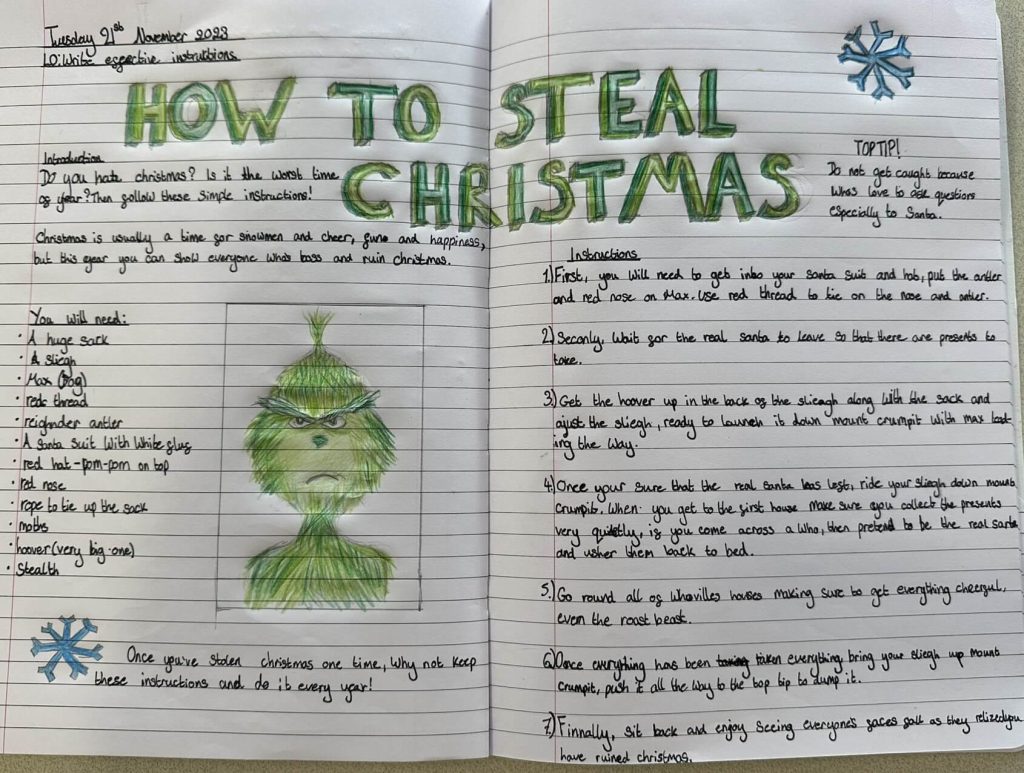 Tuesday 21st November 2023
LO: Write effective instructions
HOW TO STEAL
CHRISTMAS
Introduction
Do you hate christmas? Is it the worst time
of year? Then follow these simple instructions!
Christmas is usually a time for snowmen and cheer, fun and happiness,
but this year you can show everyone whos boss and ruin christmas.
You will need:
· A huge sack
· A sliegh
· Max (Dog)
· red thread
· reighnder antler
· A santa suit with white fluf
· red hat-pom-pom on top
· red nose
· rope to tie up the sack
· moths
· hoover (very big one)
· Stealth
Once you've stolen christmas one time, why not keep
these instructions and do it every year!
TOP TIP!
Do not get caught because
whos love to ask questions
especially to Santa.
Instructions
1.) First, you will need to get into your santa suit and hat, put the antler
and red nose on Max. Use red thread to tie on the nose and antler.
2.) Seconly, wait for the real santa to leave so that there are presents to
take.
3.) Get the hoover up in the back of the slieagh along with the sack and
ajust the sliegh, ready to launch it down mount crumpit with max
ing the way.
4.) Once your sure that the real santa has left, ride your sliegh down mount
crumpit. When you get to the first house make sure you collect the presents
very quietly, if you come across a who, then pretend to be the real santa
and usher them back to bed.
5.) Go round all of whovilles houses making sure to get everything cheerful,
even the roast beast.
6.) Once everything has been taken everything bring your sliegh up mount
crumpit, push it all the way to the top tip to dump it.
7.) Finnally, sit back and enjoy seeing everyones faces fall as they relized you
have ruined christmas.